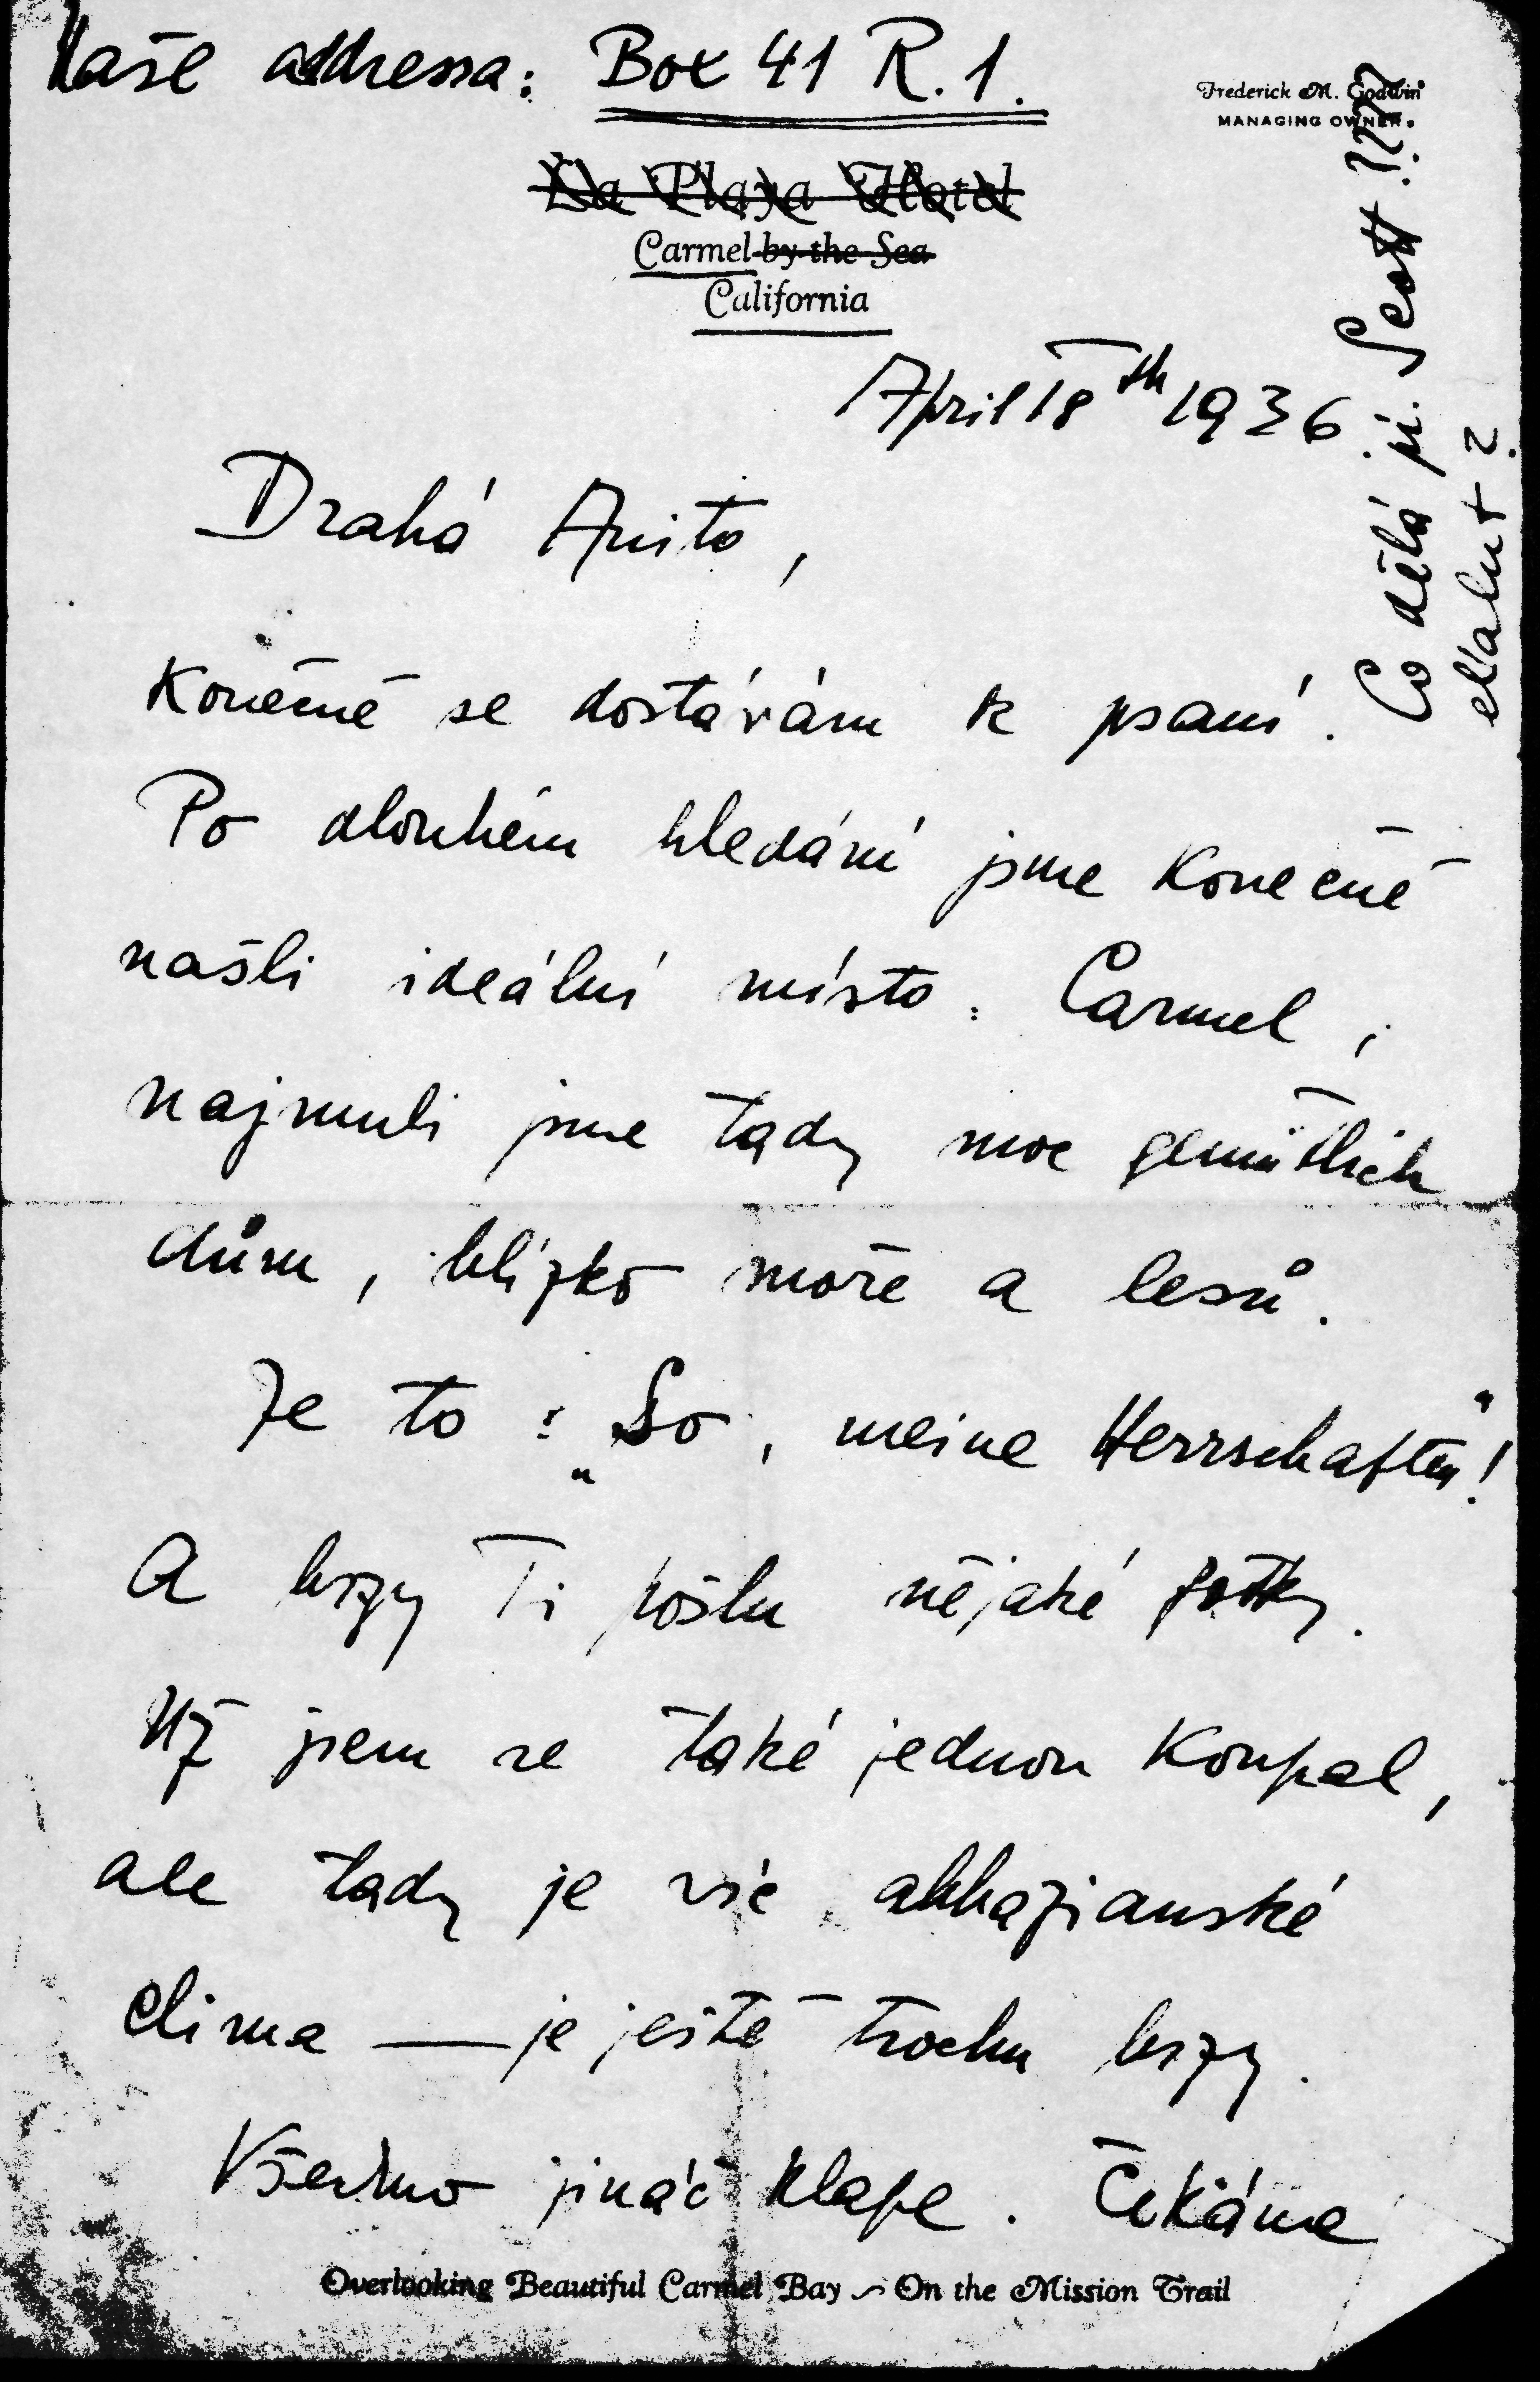 Naše addressa: Box 41 R. 1.
Frederick M. Godwin
MANAGING OWNER.
La Playa Hotel
Carmel-by-the-Sea
California
April 18th 1936.
Drahá Anito,
Konečně se dostávám k psaní.
Po dlouhém hledání jsme konečně
našli ideální místo: Carmel,
najmuli jsme tady moc gemütlich
dům, blízko moře a lesů.
Je to: „So, meine Herrschaften"!
A brzy Ti pošlu nějaké fotky.
Už jsem se také jednou koupal,
ale tady je víc abbazianské
clima — je ještě trochu brzy.
Všechno jináč klape. Čekáme
Overlooking Beautiful Carmel Bay ~ On the Mission Trail
Co dělá pí. Scott ????